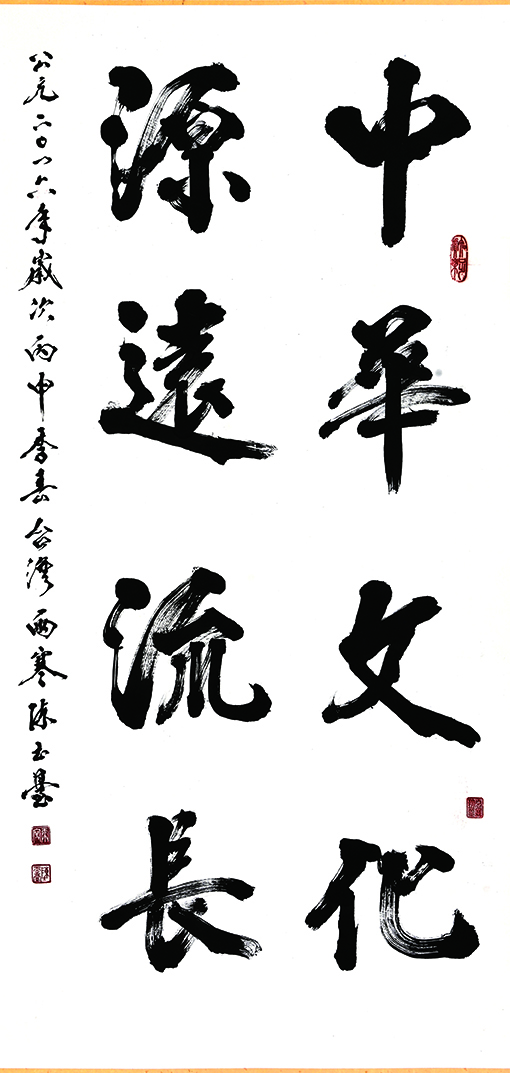 中華文化
源遠流長
公元二〇一六年歲次丙申季春台灣雨寒陳玉